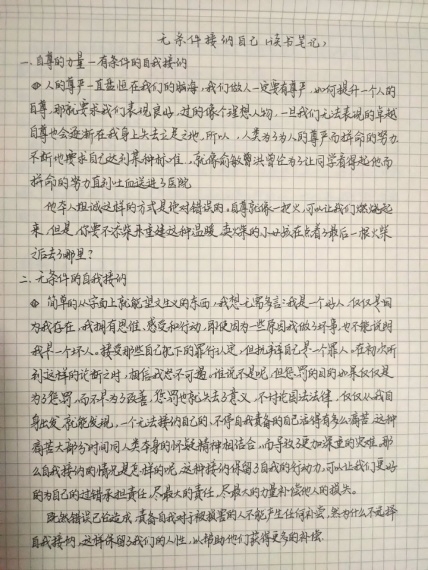 无条件接纳自己(读书笔记)
一、自尊的力量—有条件的自我接纳
人的尊严一直盘恒在我们的脑海,我们做人一定要有尊严,如何提升一个人的
自尊,那就要求我们表现良好,过的像个理想人物,一旦我们无法表现的卓越
自尊也会逐渐在我身上失去立足之地,所以,人类为了为人的尊严而拼命的努力
不断地要求自己达到某种标准,就像俞敏洪曾位为了让同学看得起他而
拼命的努力直到吐血送进了医院
他本人坦诚这样的方式是绝对错误的,自尊就像一把火,可以让我们燃烧起
来,但是,你要不添柴再重建这种温暖,卖火柴的小女孩在点着了最后一根火柴
之后去了哪里?
二、无条件的自我接纳
简单的从字面上就能望文生义的东西,我想无需多言:我是一个好人,仅仅是因
为我存在,我拥有思维、感受和行动,即使因为一些原因我做了坏事,也不能说明
我是一个坏人。接受那些自己犯下的罪行认定,但抗拒自己是一个罪人。在初次听
到这样的论断之时,相信我忿不可遏,谁说不是呢,但惩罚的目的如果仅仅是
为了惩罚,而不是为了改善,惩罚也就失去了意义,不讨论因法法律,仅仅从我自
身出发,就能发现,一个无法接纳自己的,不停自我责备的自己活得有多么痛苦,这种
痛苦大部分时间同人类本身的怀疑精神相结合,而导致了更加深重的灾难,那
么自我接纳的情况是怎样的呢,这种接纳保留了自我的行动力,可以让我们更好
的为自己的过错承担责任,尽最大的责任,尽最大的力量补偿他人的损失。
既然错误已经造成,责备自我对于被损害的人不能产生任何补偿,然为什么不选择
自我接纳,这样保留了我们的人性,以帮助他们获得更多的补偿.